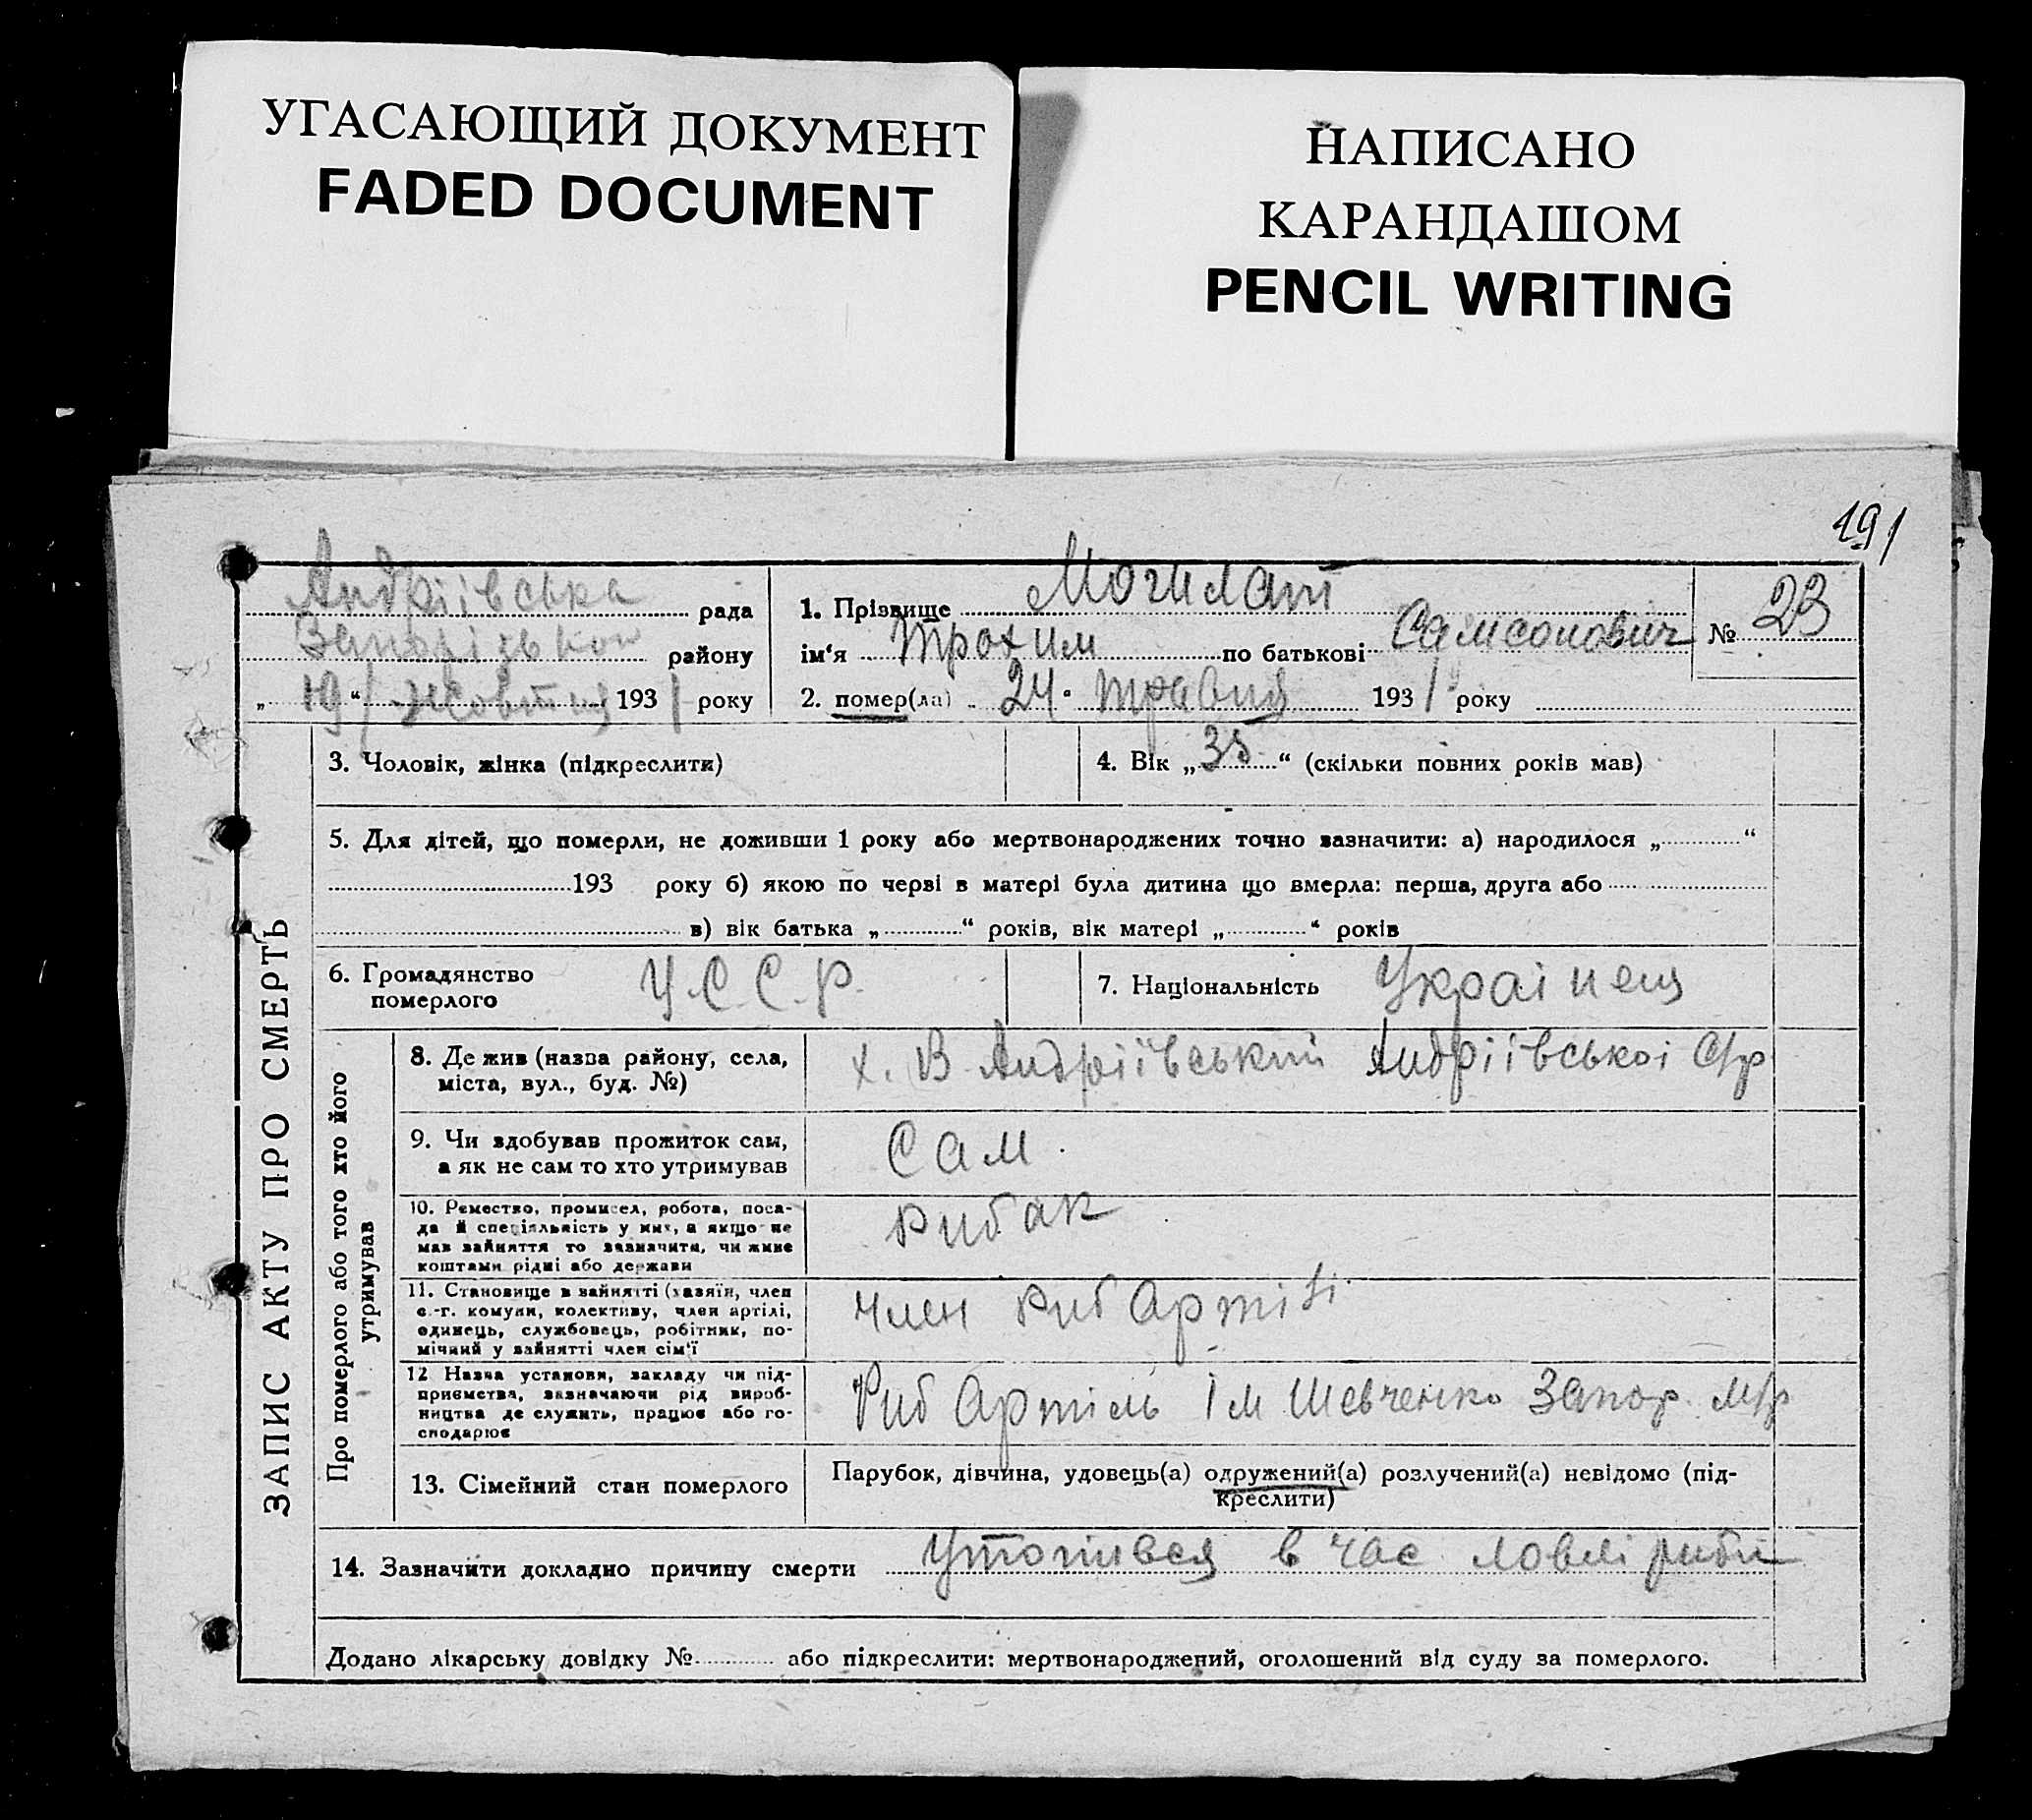 УГАСАЮЩИЙ ДОКУМЕНТ
FADED DOCUMENT
НАПИСАНО
КАРАНДАШОМ
PENCIL WRITING
191
Андріївська рада
Запорізької району
„ 19 “ жовтня 1931 року
1. Прізвище Могилат
ім‘я Трохим по батькові Самсонович
№ 23
2. помер(ла) 24. травня 1931 року
ЗАПИС АКТУ ПРО СМЕРТЬ
3. Чоловік, жінка (підкреслити)
4. Вік „ 35 “ (скільки повних років мав)
5. Для дітей, що померли, не доживши 1 року або мертвонароджених точно зазначити: а) народилося „ “
193 року б) якою по черві в матері була дитина що вмерла: перша, друга або
в) вік батька „ “ років, вік матері „ “ років
6. Громадянство померлого У.С.С.Р.
7. Національність Українець
Про померлого або того хто його
утримував
8. Де жив (назва району, села,
міста, вул., буд. №)
х. В Андріївський Андріївської С/р
9. Чи здобував прожиток сам,
а як не сам то хто утримував
Сам.
10. Ремество, промисел, робота, поса-
да й спеціяльність у них, а якщо не
мав зайняття то зазначити, чи живе
коштами рідні або держави
Рибак
11. Становище в зайнятті (хазяїн, член
с.-г. комуни, колективу, член артілі,
одинець, службовець, робітник, по-
мічний у зайнятті член сім‘ї
член риб Артілі
12 Назва установи, закладу чи під-
приємства, зазначаючи рід вироб-
ництва де служить, працює або го-
сподарює
Риб Артіль Ім Шевченко Запор. м/р
13. Сімейний стан померлого
Парубок, дівчина, удовець(а) одружений(а) розлучений(а) невідомо (під-
креслити)
14. Зазначити докладно причину смерти Утопився в час ловлі риби
Додано лікарську довідку № або підкреслити: мертвонароджений, оголошений від суду за померлого.